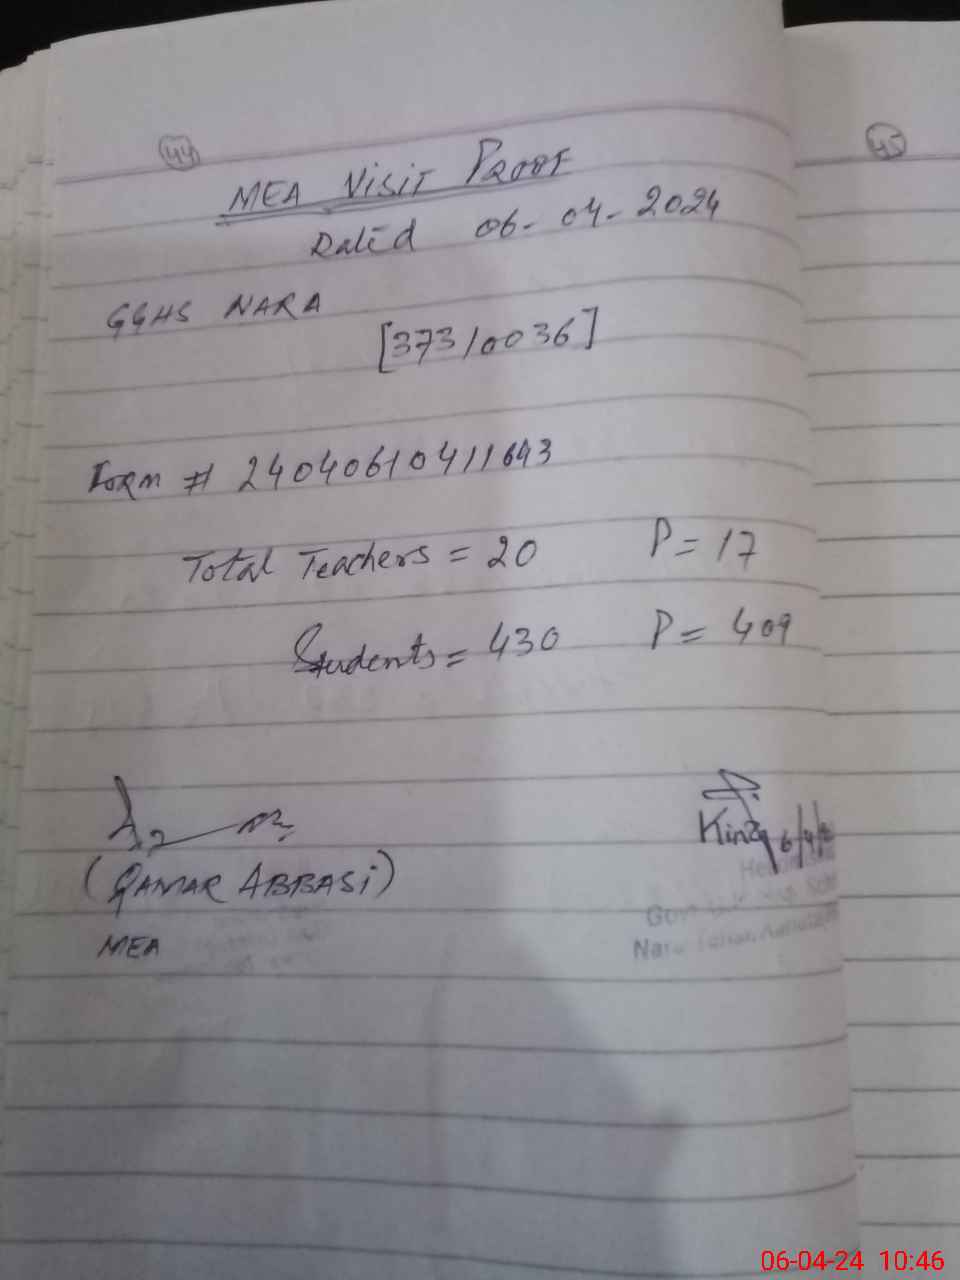 44
45
MEA VISIT PROOF
Dated 06-04-2024
GGHS NARA
[37310036]
Form # 24040610411643
Total Teachers = 20 P = 17
Students = 430 P = 409
Kinza 6/4/
(QAMAR ABBASI)
MEA
Nara
06-04-24 10:46